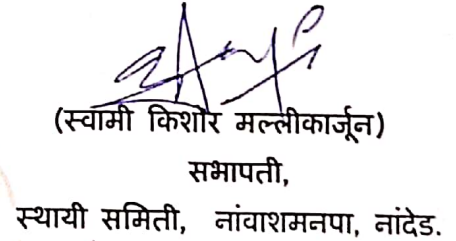 (स्वामी किशोर मल्लीकार्जून)
सभापती,
स्थायी समिती, नांवाशमनपा, नांदेड.